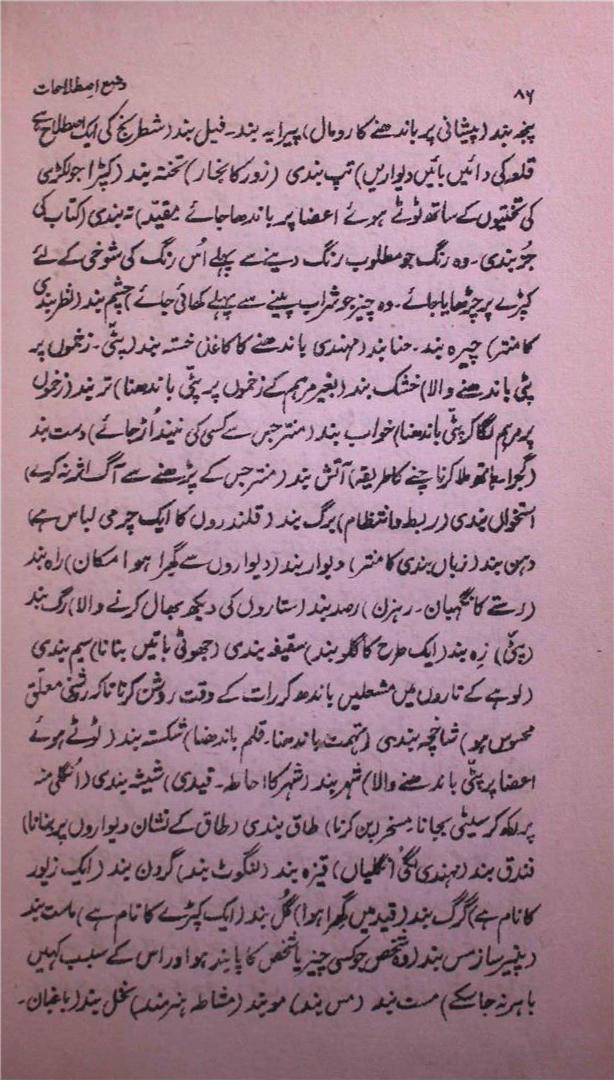 ۸۶
وضع اصطلاحات
پنجہ بند (پیشانی پر باندھنے کا رومال) پیرایہ بند۔ فیل بند (شطرنج کی ایک اصطلاح ہے
قلعہ کی دائیں بائیں دیواریں) تپ بندی (زور کا بخار) تختہ بند (کپڑا جو لکڑی
کی تختیوں کے ساتھ ٹوٹے ہوئے اعضا پر باندھا جائے مقیّد) تہ بندی (کتاب کی
جُز بندی۔ وہ رنگ جو مطلوب رنگ دینے سے پہلے اُس رنگ کی شوخی کے لئے
کپڑے پر چڑھایا جائے۔ وہ چیز جو شراب پینے سے پہلے کھائی جائے) چشم بند (نظر بندی
کا منتر) چیرہ بند۔ حنا بند (مہندی باندھنے کا کاغذ) خستہ بند (پٹّی۔ زخموں پر
پٹی باندھنے والا) خشک بند (بغیر مرہم کے زخموں پر پٹّی باندھنا) تر بند (زخموں
پر مرہم لگا کر پٹّی باندھنا) خواب بند (منتر جس سے کسی کی نیند اُڑ جائے) دست بند
(گجرا۔ ہاتھ ملا کر ناچنے کا طریقہ) آتش بند (منتر جس کے پڑھنے سے آگ اثر نہ کرے)
استخواں بندی (ربط و انتظام) برگ بند (قلندروں کا ایک چرمی لباس ہے)
دہن بند (زباں بندی کا منتر) دیوار بند (دیواروں سے گھرا ہوا مکان) راہ بند
(رستے کا نگہبان۔ رہزن) رصد بند (ستاروں کی دیکھ بھال کرنے والا) رگ بند
(پٹّی) زہ بند (ایک طرح کا گلو بند) سقیفہ بندی (جھوٹی باتیں بنانا) سیم بندی
(لوہے کے تاروں میں مشعلیں باندھ کر رات کے وقت روشن کرنا تاکہ روشنی معلّق
محسوس ہو) شانچہ بندی (تہمت باندھنا۔ قلم باندھنا) شکستہ بند (ٹوٹے ہوئے
اعضا پر پٹّی باندھنے والا) شہر بند (شہر کا احاطہ۔ قیدی) شیشہ بندی (انگلی منہ
پر رکھ کر سیٹی بجانا۔ مسخرا پن کرنا) طاق بندی (طاق کے نشان دیواروں پر بنانا)
فندق بند (مہندی لگی انگلیاں) قیزہ بند (لنگوٹ بند) گردن بند (ایک زیور
کا نام ہے) گرگ بند (قید میں گھرا ہوا) گُل بند (ایک کپڑے کا نام ہے) ماست بند
(پنیر ساز) مس بند (وہ شخص جو کسی چیز یا شخص کا پابند ہو اور اس کے سبب کہیں
باہر نہ جا سکے) مست بند (مس بند) مو بند (مشاطہ ہنرمند) نخل بند (باغبان۔